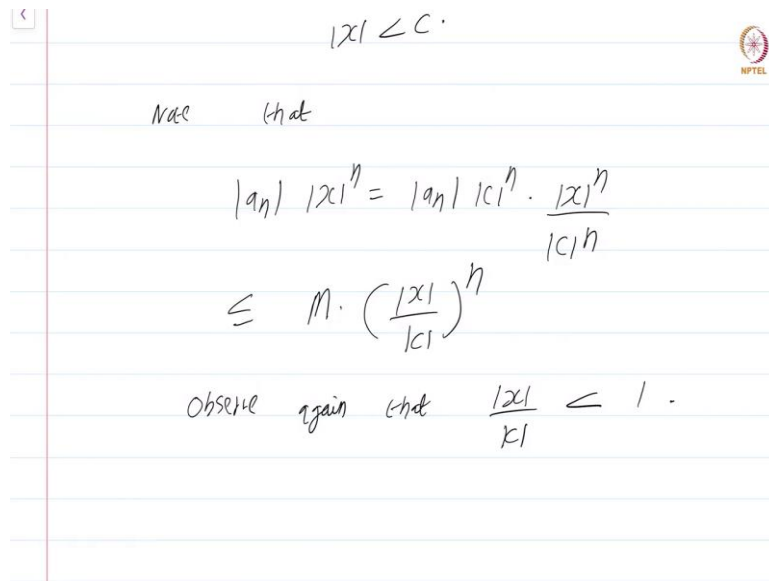 |x| < C.
NPTEL
Note that
|a_n| |x|^n = |a_n| |c|^n · |x|^n / |c|^n
≤ M · (|x| / |c|)^n
Observe again that |x| / |c| < 1 .